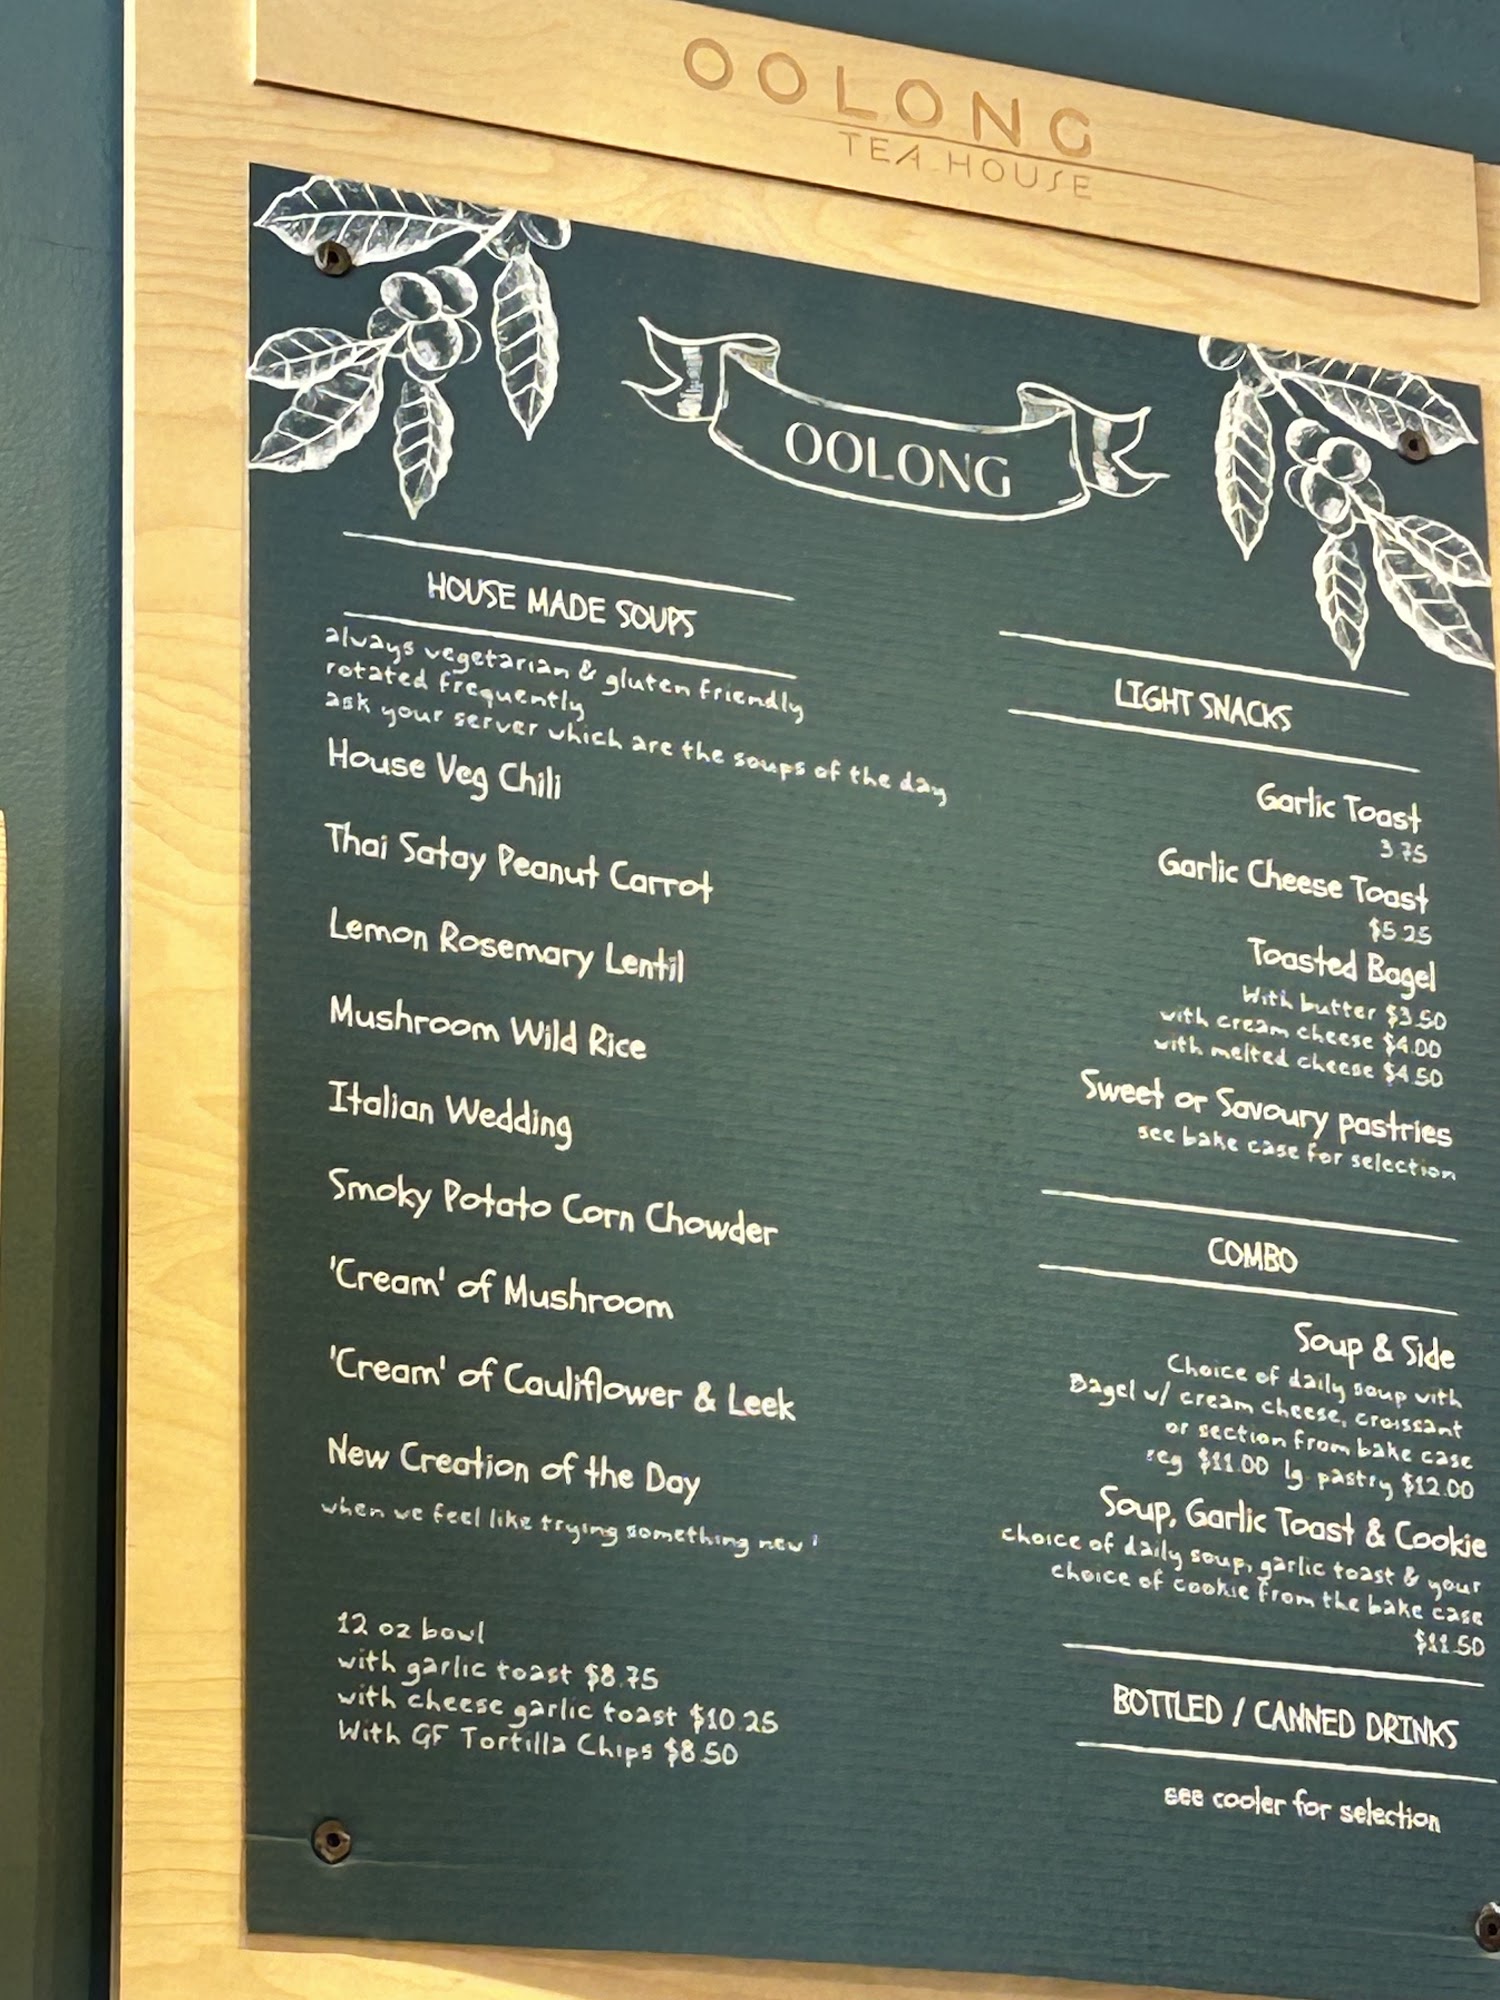 OOLONG
TEA HOUSE
OOLONG
HOUSE MADE SOUPS
always vegetarian & gluten friendly
rotated frequently
ask your server which are the soups of the day
House Veg Chili
Thai Satay Peanut Carrot
Lemon Rosemary Lentil
Mushroom Wild Rice
Italian Wedding
Smoky Potato Corn Chowder
'Cream' of Mushroom
'Cream' of Cauliflower & Leek
New Creation of the Day
when we feel like trying something new!
12 oz bowl
with garlic toast $8.75
with cheese garlic toast $10.25
With GF Tortilla Chips $8.50
LIGHT SNACKS
Garlic Toast
3.75
Garlic Cheese Toast
$5.25
Toasted Bagel
With butter $3.50
with cream cheese $4.00
with melted cheese $4.50
Sweet or Savoury pastries
see bake case for selection
COMBO
Soup & Side
Choice of daily soup with
Bagel w/ cream cheese, croissant
or section from bake case
reg $11.00 lg pastry $12.00
Soup, Garlic Toast & Cookie
choice of daily soup, garlic toast & your
choice of cookie from the bake case
$11.50
BOTTLED / CANNED DRINKS
see cooler for selection